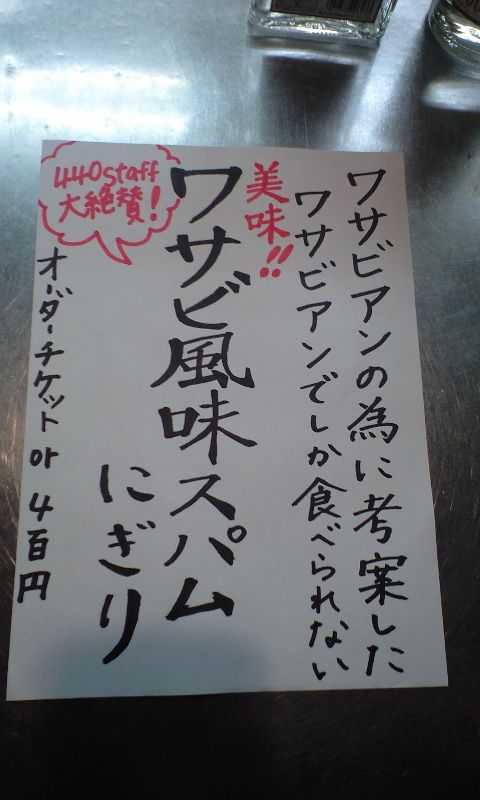 ワサビアンの為に考案した
ワサビアンでしか食べられない
美味!!
ワサビ風味スパム
にぎり
440staff
大絶賛!
オーダーチケット or 4百円